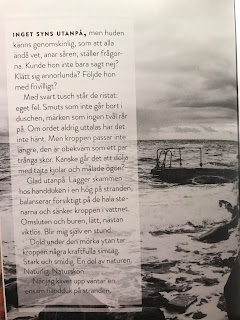 INGET SYNS UTANPÅ, men huden
känns genomskinlig, som att alla
ändå vet, anar såren, ställer frågor-
na. Kunde hon inte bara sagt nej?
Klätt sig annorlunda? Följde hon
med frivilligt?
Med svart tusch står de ristat:
eget fel. Smuts som inte går bort i
duschen, märken som ingen tvål rår
på. Om ordet aldrig uttalas har det
inte hänt. Men kroppen passar inte
längre, den är obekväm som ett par
trånga skor. Kanske går det att dölja
med tajta kjolar och målade ögon?
Glad utanpå. Lager skammen
hos handduken i en hög på stranden,
balanserar försiktigt på de hala ste-
narna och sänker kroppen i vattnet.
Omsluten och buren, lätt, nästan
viktlös. Blir mig själv en stund.
Dold under den mörka ytan tar
kroppen några kraftfulla simtag.
Stark och smidig. En del av naturen.
Naturlig. Naturskön.
När jag kliver upp väntar en
ensam handduk på stranden.